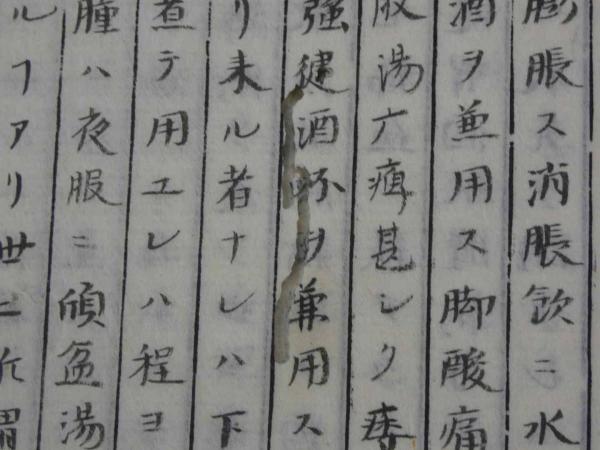 膨脹ス消脹飲ニ水
酒ヲ兼用ス脚酸痛
湯 甚シク
強健酒 ヲ兼用ス
リ来ル者ナレハ下
煮テ用エレハ程ヨ
腫ハ夜服ニ傾盆湯
ルフアリ世ニ所謂